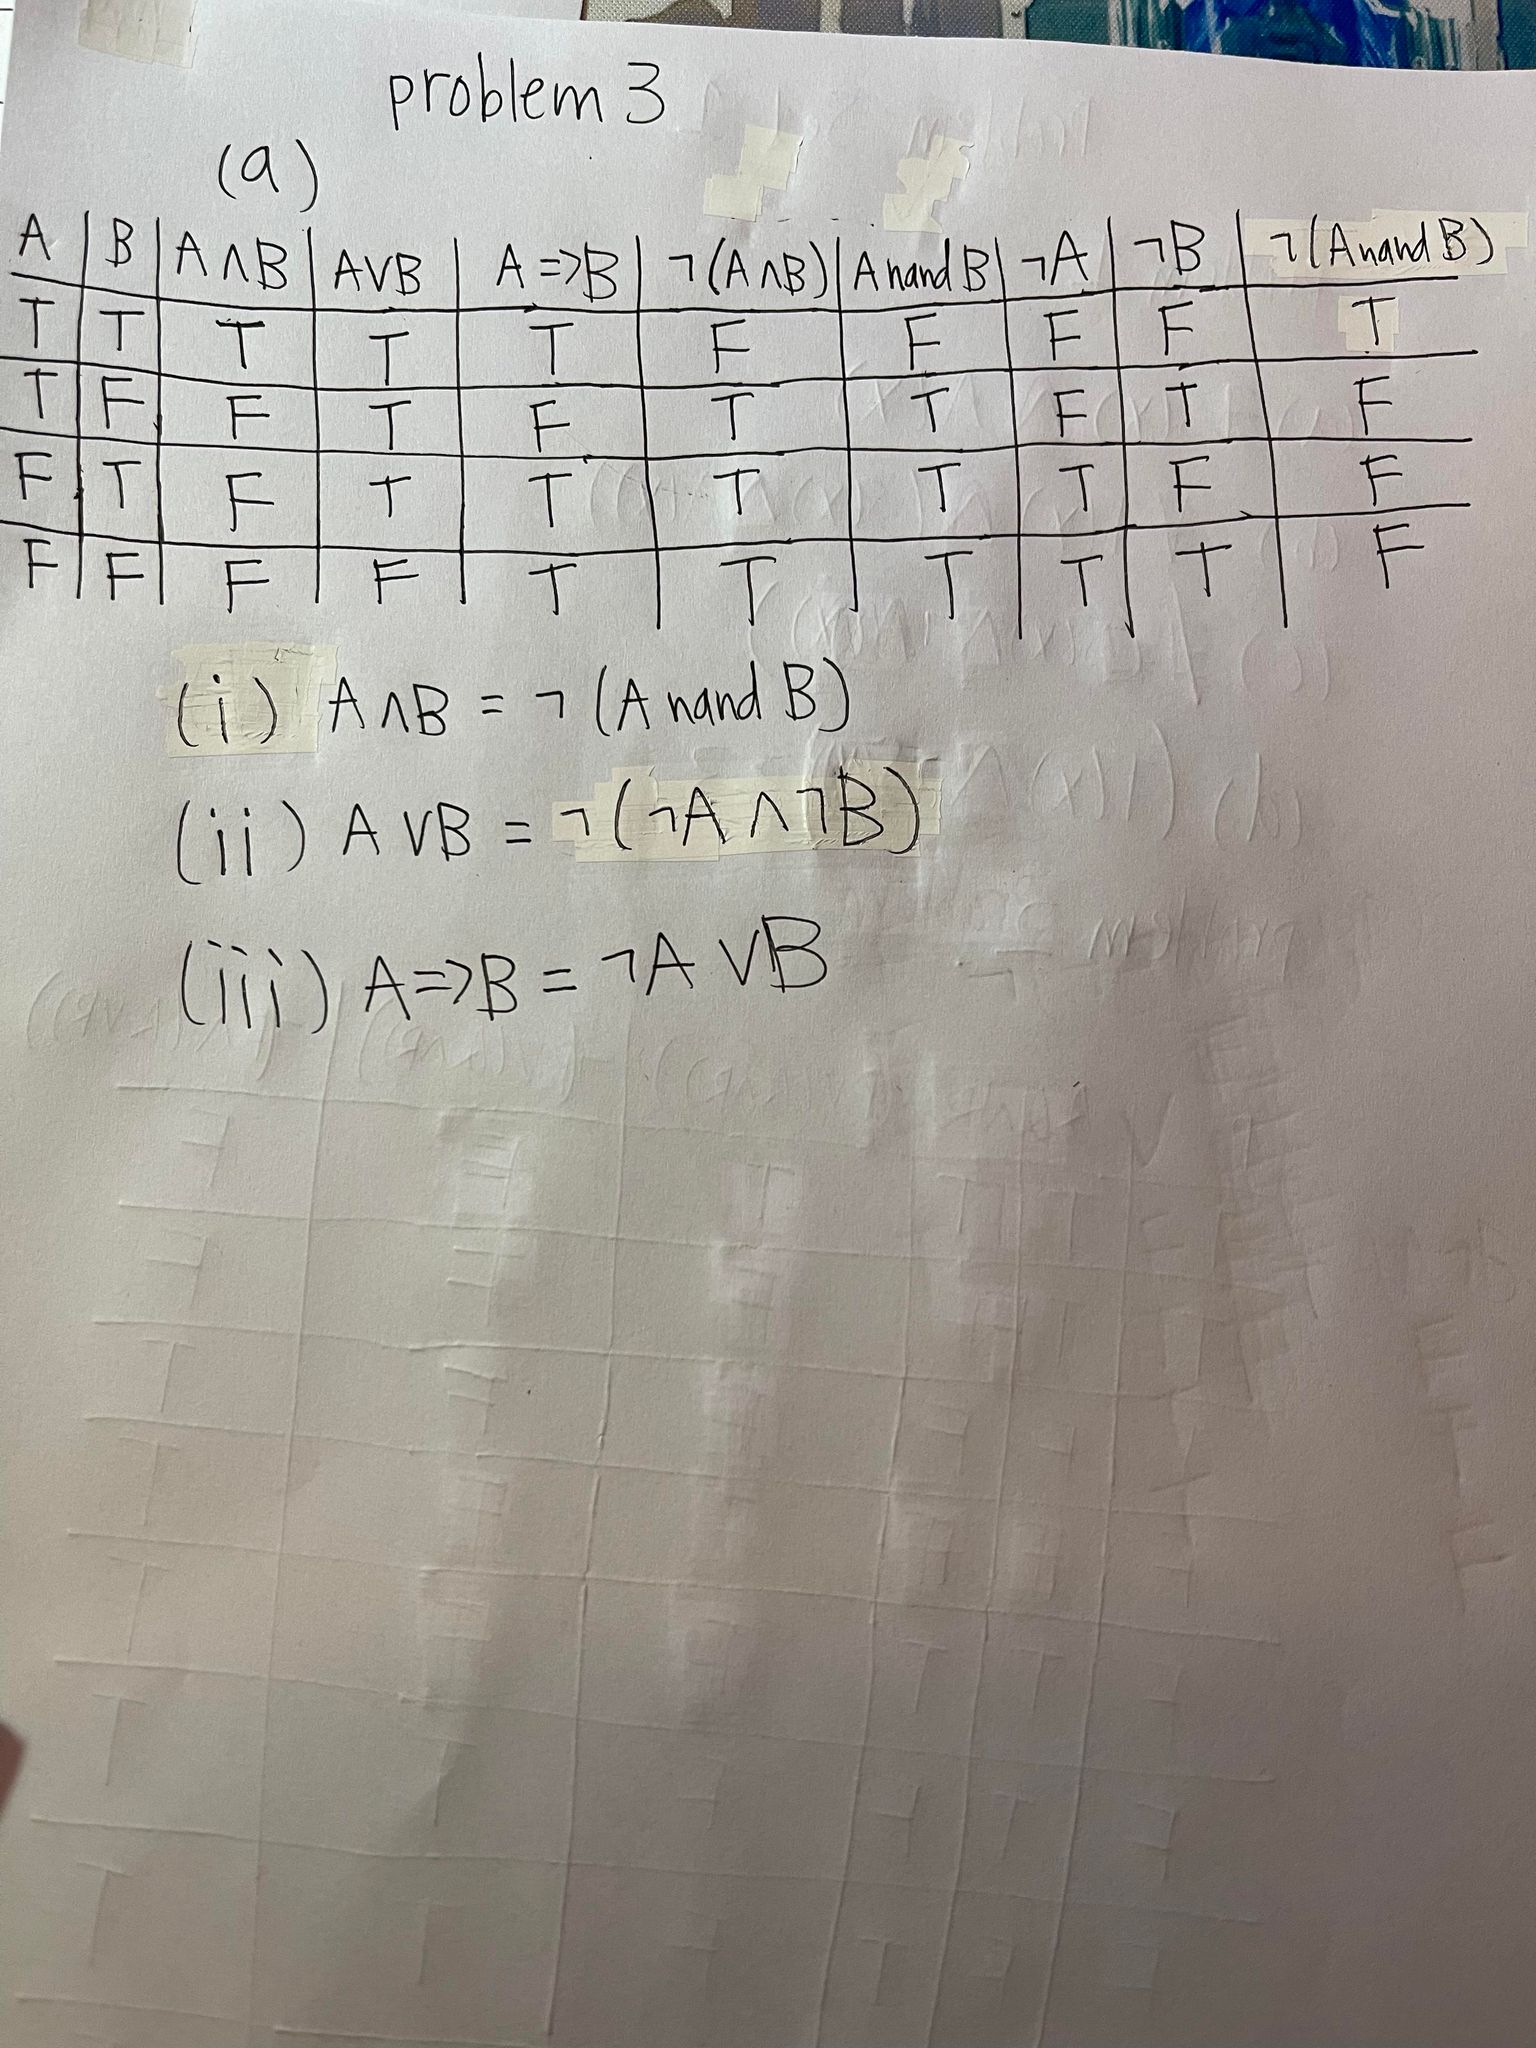 problem 3
(a)
A B A∧B A∨B A=>B ¬(A∧B) A nand B ¬A ¬B ¬(A nand B)
T T T T T F F F F T
T F F T F T T F T F
F T F T T T T T F F
F F F F T T T T T F
(i) A∧B = ¬(A nand B)
(ii) A∨B = ¬(¬A∧¬B)
(iii) A=>B = ¬A∨B